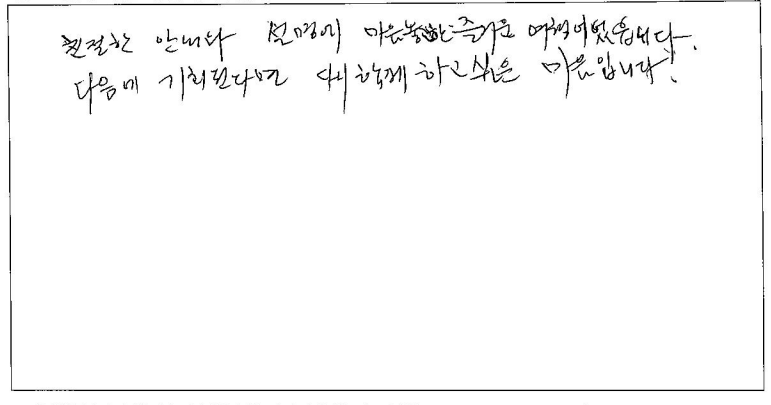 친절한 안내와 설명에 마음 즐거운 여행이었읍니다.
다음에 기회된다면 다시 함께 하고 싶은 마음입니다!